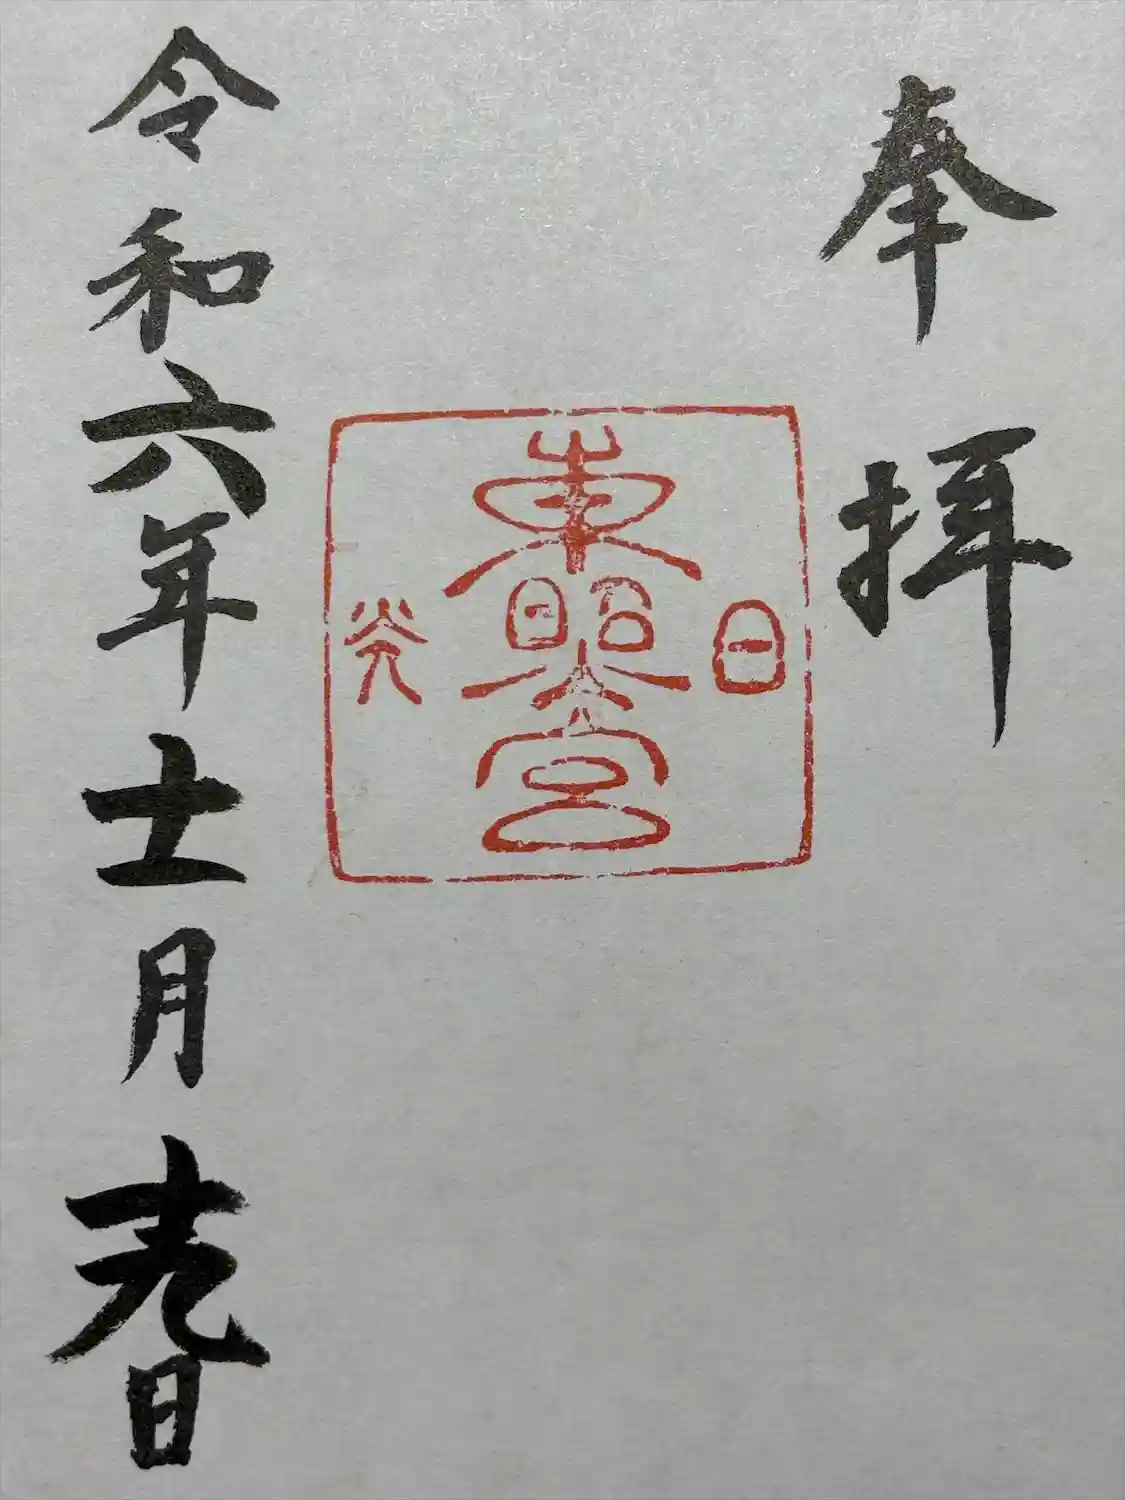 奉拝
日
東照宮
光
令和六年十一月 九日